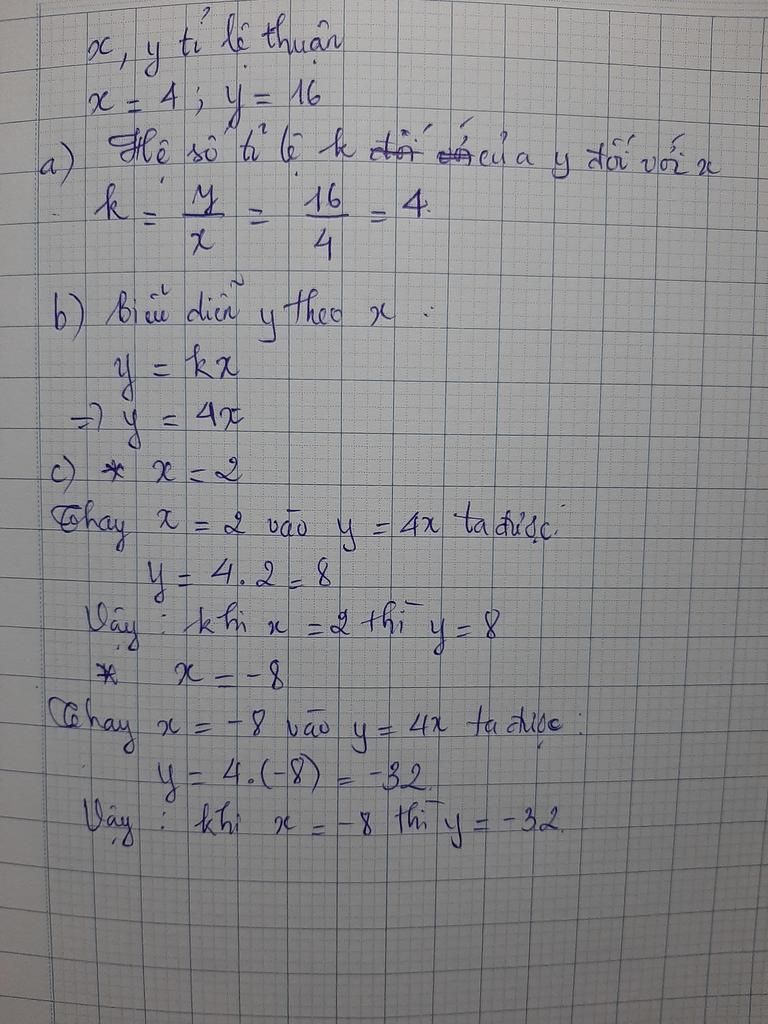 x, y tỉ lệ thuận
x = 4 ; y = 16
a) Hệ số tỉ lệ k đối với của y đối với x
k = y/x = 16/4 = 4.
b) Biểu diễn y theo x :
y = kx
=> y = 4x
c) * x = 2
Thay x = 2 vào y = 4x ta được:
y = 4.2 = 8
Vậy : khi x = 2 thì y = 8
* x = -8
Thay x = -8 vào y = 4x ta được :
y = 4.(-8) = -32.
Vậy : khi x = -8 thì y = -32.